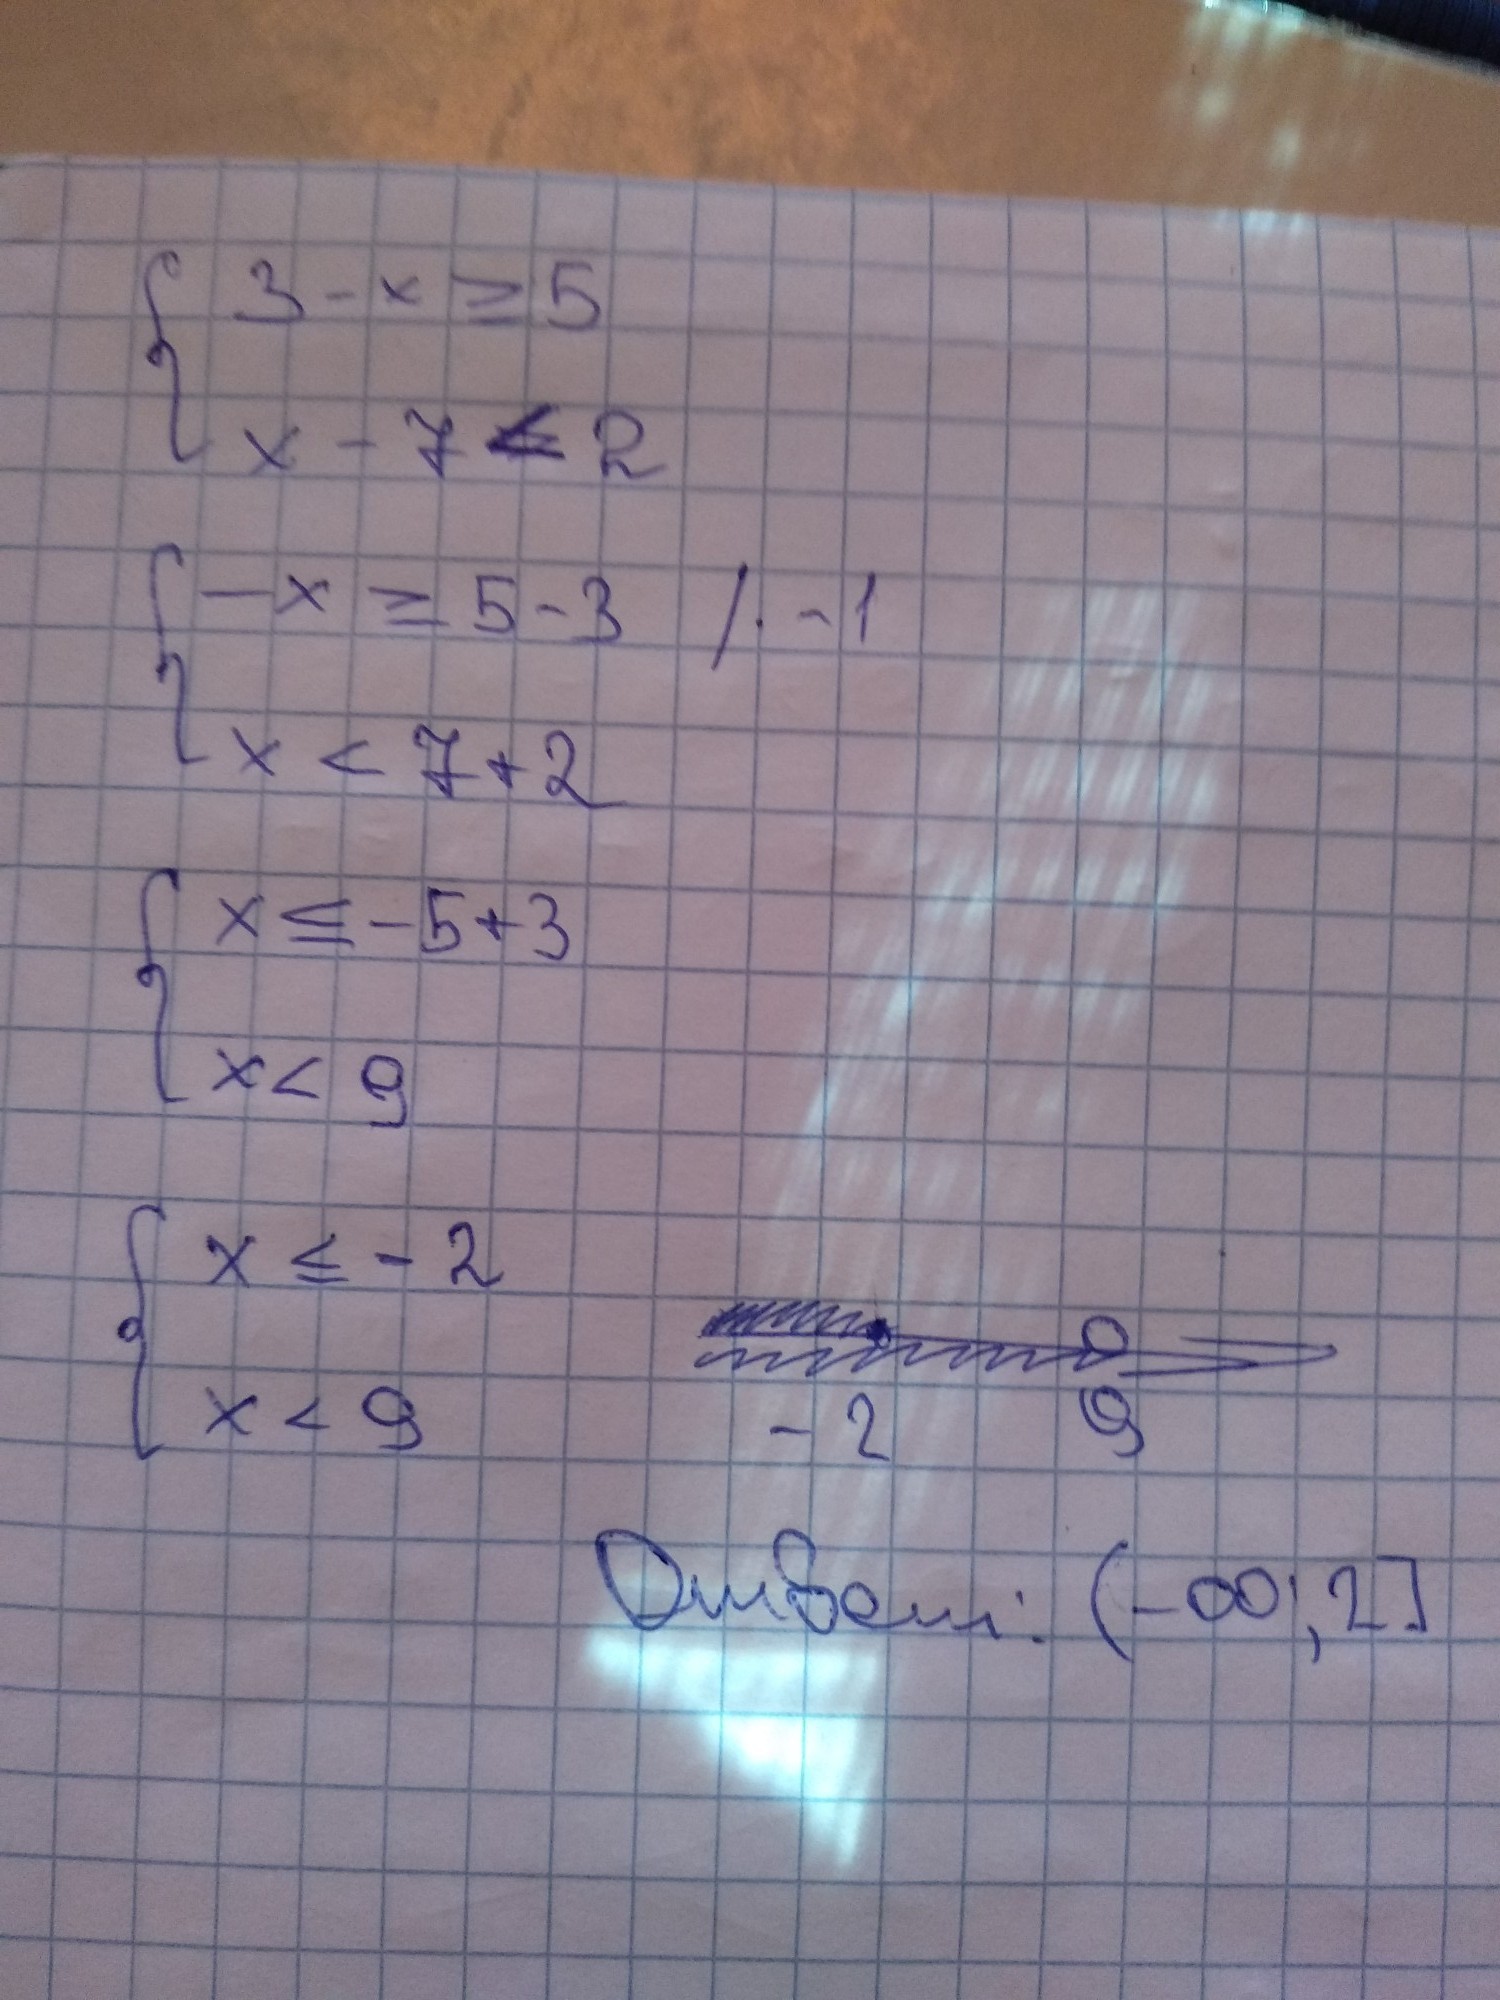 3 - x ≥ 5
x - 7 < 2
-x ≥ 5 - 3 /· -1
x < 7 + 2
x ≤ -5 + 3
x < 9
x ≤ -2
x < 9
-2 9
Ответ: (-∞; 2]